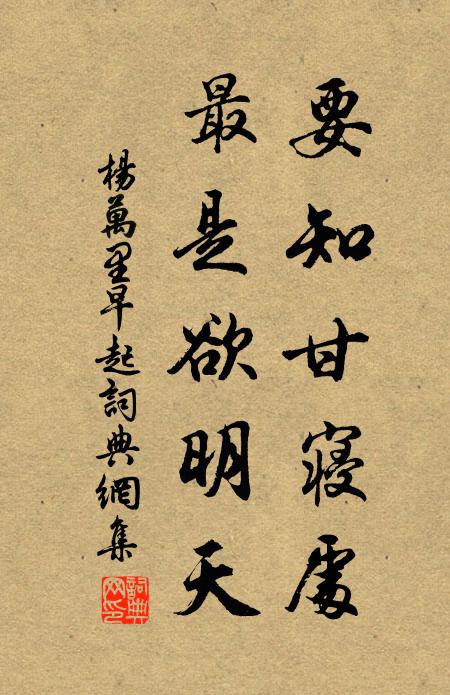 要知甘寢處
最是欲明天
楊萬里早起詞典網集
詞典網印